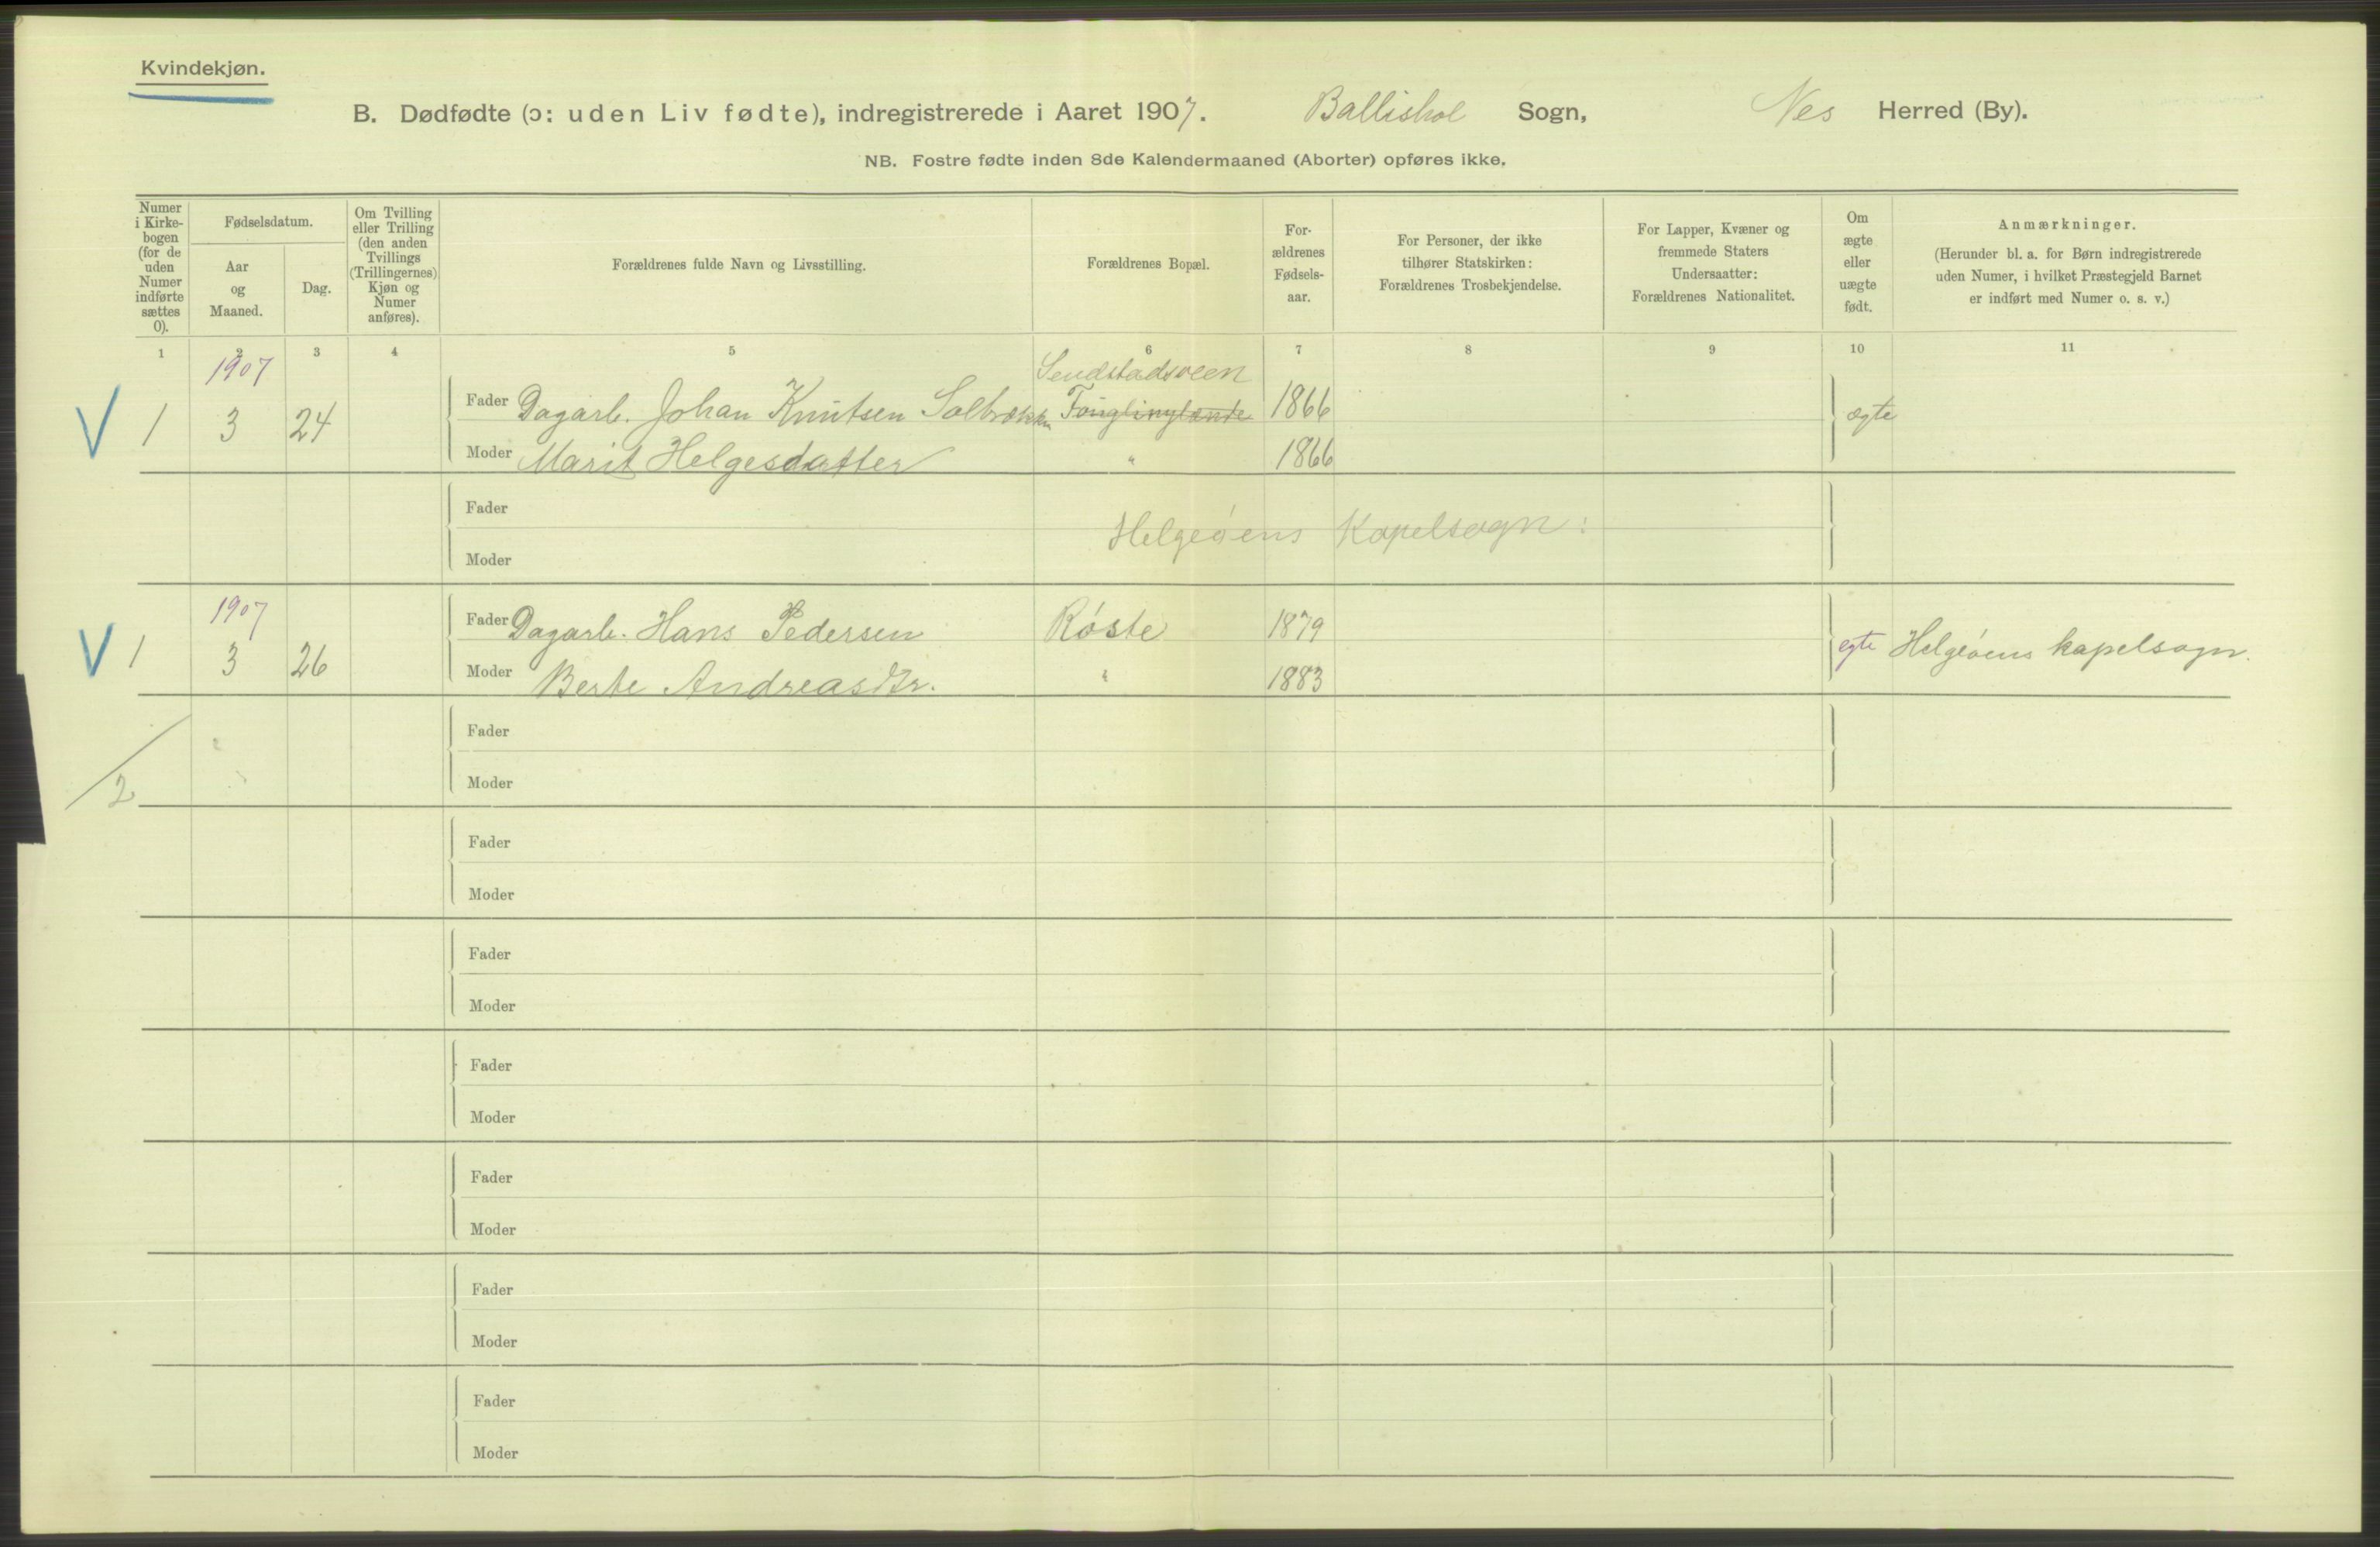 Kvindekjøn.
B. Dødfødte (ɔ: uden Liv fødte), indregistrerede i Aaret 1907. Ballishol Sogn, Nes Herred (By).
NB. Fostre fødte inden 8de Kalendermaaned (Aborter) opføres ikke.
Numer i Kirke-bogen (for de uden Numer indførte sættes 0).
Fødselsdatum.
Aar og Maaned.
Dag.
Om Tvilling eller Trilling (den anden Tvillings (Trillingernes) Kjøn og Numer anføres).
Forældrenes fulde Navn og Livsstilling.
Forældrenes Bopæl.
For-ældrenes Fødsels-aar.
For Personer, der ikke tilhører Statskirken: Forældrenes Trosbekjendelse.
For Lapper, Kvæner og fremmede Staters Undersaatter: Forældrenes Nationalitet.
Om ægte eller uægte født.
Anmærkninger.
(Herunder bl. a. for Børn indregistrerede uden Numer, i hvilket Præstegjeld Barnet er indført med Numer o. s. v.)
1 2 3 4 5 6 7 8 9 10 11
1907 Sendstadsveen
V 1 3 24 Fader Dagarb. Johan Knutsen 1866 ægte
Moder Marit Helgesdatter " 1866
Fader
Helgeøens Kapelsogn:
Moder
1907
V 1 3 26 Fader Dagarb. Hans Pedersen Røste 1879 egte Helgeøens kapelsogn.
Moder Berte Andreasdtr. " 1883
Fader
2
Moder
Fader
Moder
Fader
Moder
Fader
Moder
Fader
Moder
Fader
Moder
Fader
Moder